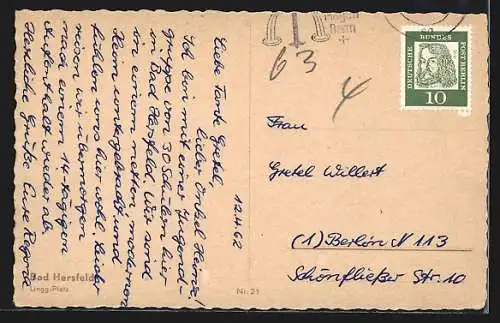 12.4.62
Liebe Tante Gretel,
lieber Onkel Heinz!
Ich bin mit einer Jugend-
gruppe von 30 Schülern hier
in Bad Hersfeld. Wir sind
in einem netten, modernen
Heim untergebracht und
fühlen uns hier wohl. Leider
reisen wir übermorgen
nach einem 14-tägigen
Aufenthalt wieder ab.
Herzliche Grüße Eure Regina
Bad Hersfeld
Lingg-Platz
Nr. 21
Bonn
63
4
DEUTSCHE POST BERLIN
DÜRER
10
Frau
Gretel Willert
(1) Berlin N 113
Schönfließer Str. 10